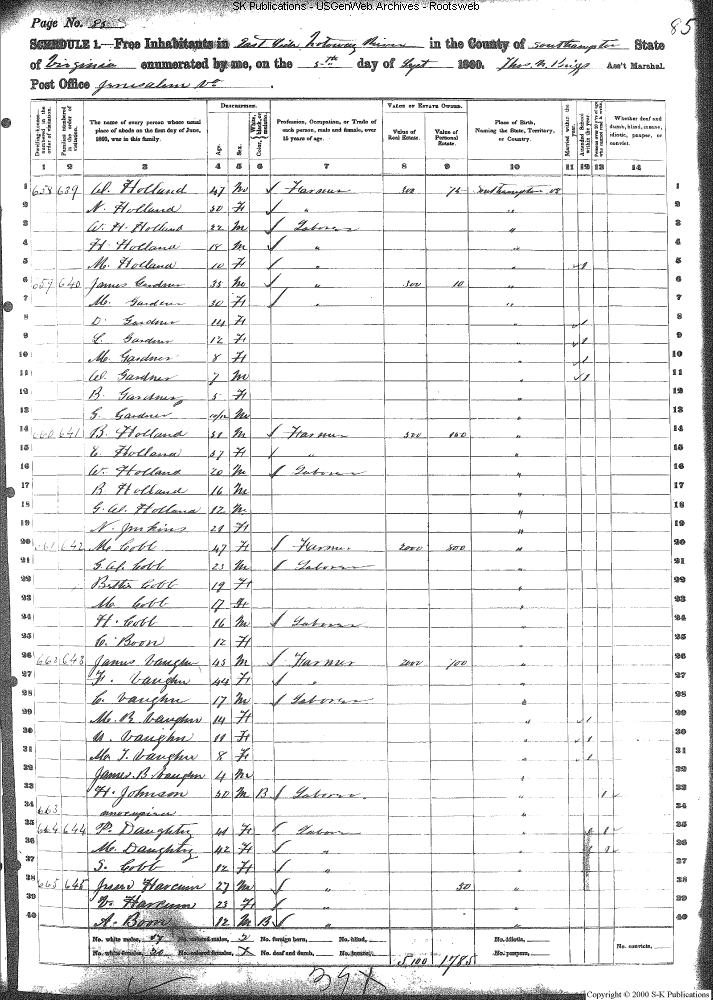 SK Publications - USGenWeb Archives - Rootsweb
Page No. 85
85
SCHEDULE 1.—Free Inhabitants in East Side Notoway River in the County of Southampton State
of Virginia enumerated by me, on the 5th day of Sept 1860. Thos. Briggs Ass't Marshal.
Post Office Jerusalem Va.
Dwelling-houses numbered in the order of visitation. Families numbered in the order of visitation. The name of every person whose usual place of abode on the first day of June, 1860, was in this family. DESCRIPTION. Age. Sex. Color, White, black, or mulatto. Profession, Occupation, or Trade of each person, male and female, over 15 years of age. VALUE OF ESTATE OWNED. Value of Real Estate. Value of Personal Estate. Place of Birth, Naming the State, Territory, or Country. Married within the year. Attended School within the year. Whether deaf and dumb, blind, insane, idiotic, pauper, or convict.
1 2 3 4 5 6 7 8 9 10 11 12 13 14
1 658 639 W. Holland 47 M / Farmer 300 75 Southampton va 1
2 N. Holland 50 F / " " 2
3 W. H. Holland 22 M / Laborer " 3
4 H. Holland 18 M / " " 4
5 M. Holland 10 F / " " / 5
6 659 640 James Gardner 35 M / " 300 10 " 6
7 M. Gardner 30 F / " " 7
8 D. Gardner 14 F " / 8
9 L. Gardner 12 F " / 9
10 M. Gardner 8 F " / 10
11 W. Gardner 7 M " / 11
12 R. Gardner 5 F " 12
13 G. Gardner M " 13
14 660 641 B. Holland M / Farmer 500 150 " 14
15 E. Holland 57 F / " " 15
16 W. Holland 20 M / Laborer " 16
17 R. Holland 16 M " 17
18 G. W. Holland 12 M " 18
19 N. Jenkins 21 F " 19
20 661 642 M. Cobb 47 F / Farmer 2000 800 " 20
21 Cobb 23 M / Laborer " 21
22 Bettie Cobb 19 F " 22
23 M. Cobb 17 F " 23
24 H. Cobb 16 M / Laborer " 24
25 C. Boon 12 F " 25
26 662 643 James Vaughn 45 M / Farmer 2000 700 " 26
27 F. Vaughn 44 F / " " 27
28 C. Vaughn 17 M / Laborer " 28
29 M. R. Vaughn 14 F " / 29
30 Vaughn 11 F " / 30
31 M. J. Vaughn 8 F " / 31
32 James B Vaughn 4 M " 32
33 H. Johnson 50 M B / Laborer " / 33
34 663 unoccupied 34
35 664 644 P. Daughtry 41 F / Labor " / 35
36 M. Daughtry 42 F / " " / 36
37 S. Cobb 12 F / " 37
38 665 645 Harcum 27 M / " 50 " 38
39 Harcum 23 F / " " 39
40 A. Boon 12 M B / " " 40
No. white males, No. colored males, 2 No. foreign born, No. blind, No. idiotic,
No. white females, 20 No. colored females, No. deaf and dumb, No. insane, 5100 1785 No. paupers, No. convicts,
Copyright © 2000 S-K Publications